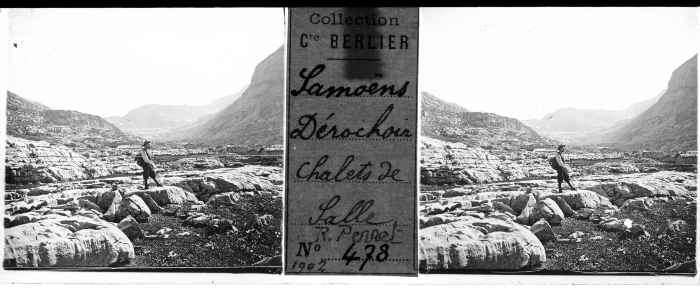 Collection
Cte BERLIER
Samoëns
Dérochoir
Chalets de
Salle
R. Perret
No 478
1902